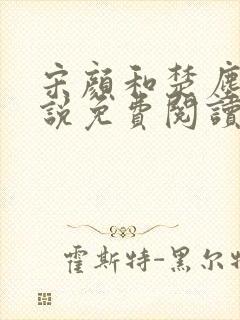 宋顏和楚塵
說免費閱讀
霍斯特-黑尔特